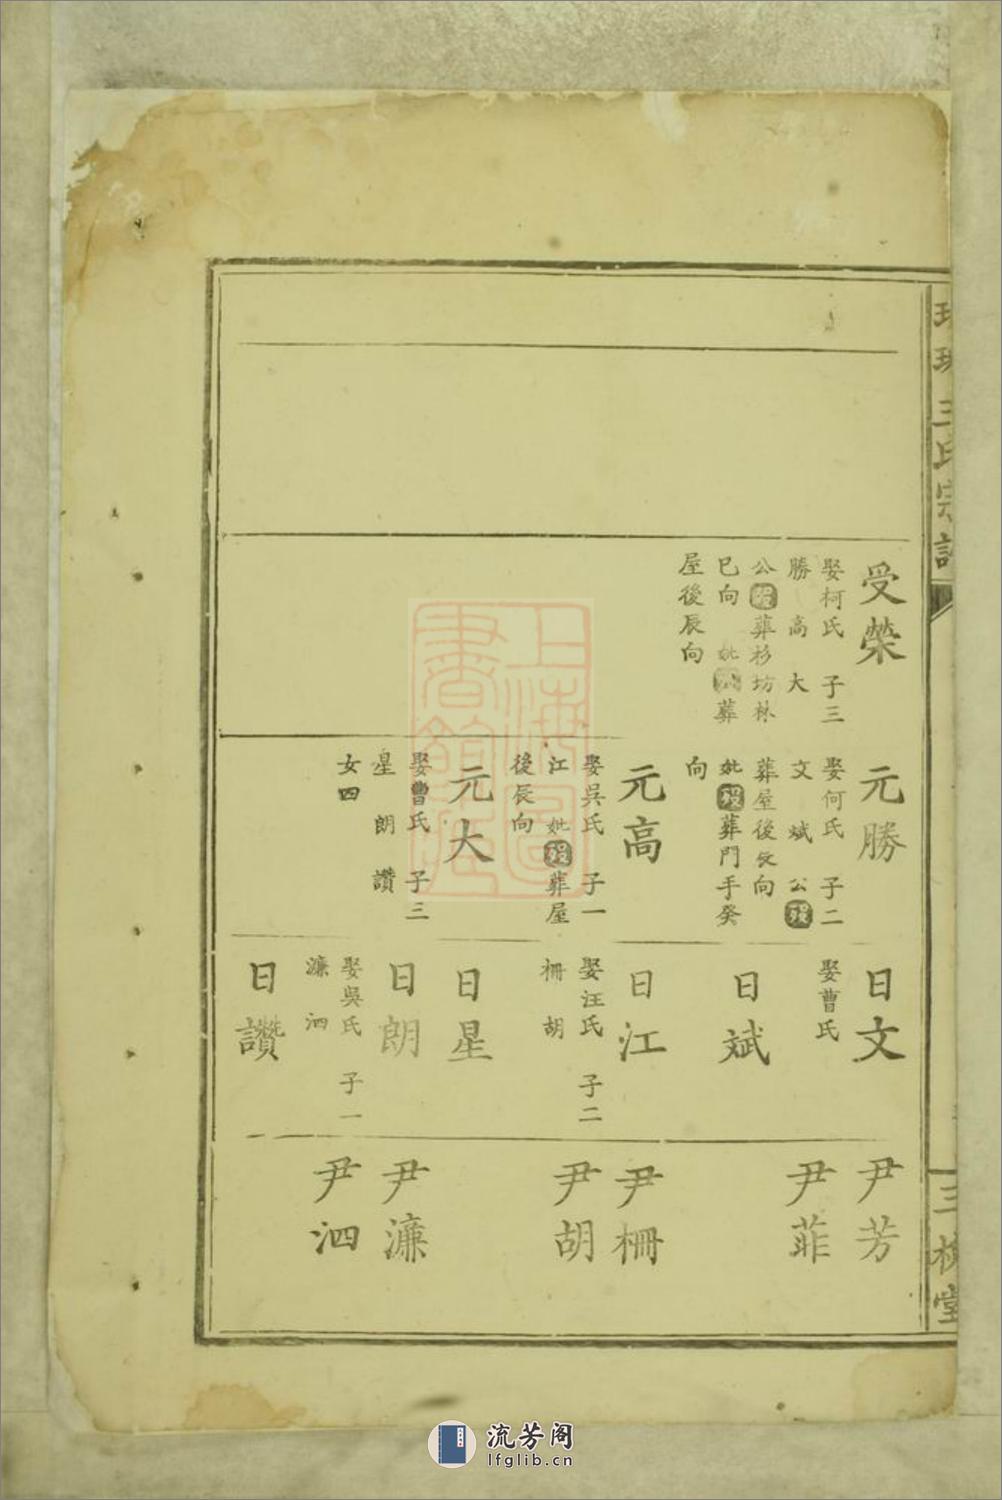 王氏宗譜
三槐堂
受榮
娶柯氏 子三
勝 高 大
公歿葬杉坊林
巳向 妣公葬
屋後辰向
元勝
娶何氏 子二
文 斌 公歿
葬屋後辰向
妣歿葬門手癸
向
元高
娶吳氏 子一
江 妣歿葬屋
後辰向
元大
娶曹氏 子三
星 朗 讚
女四
日文
娶曹氏
日斌
日江
娶汪氏 子二
柵 胡
日星
日朗
娶吳氏 子一
濂 泗
日讚
尹芳
尹菲
尹柵
尹胡
尹濂
尹泗
上海圖
書館藏
流芳阁
lfglib.cn